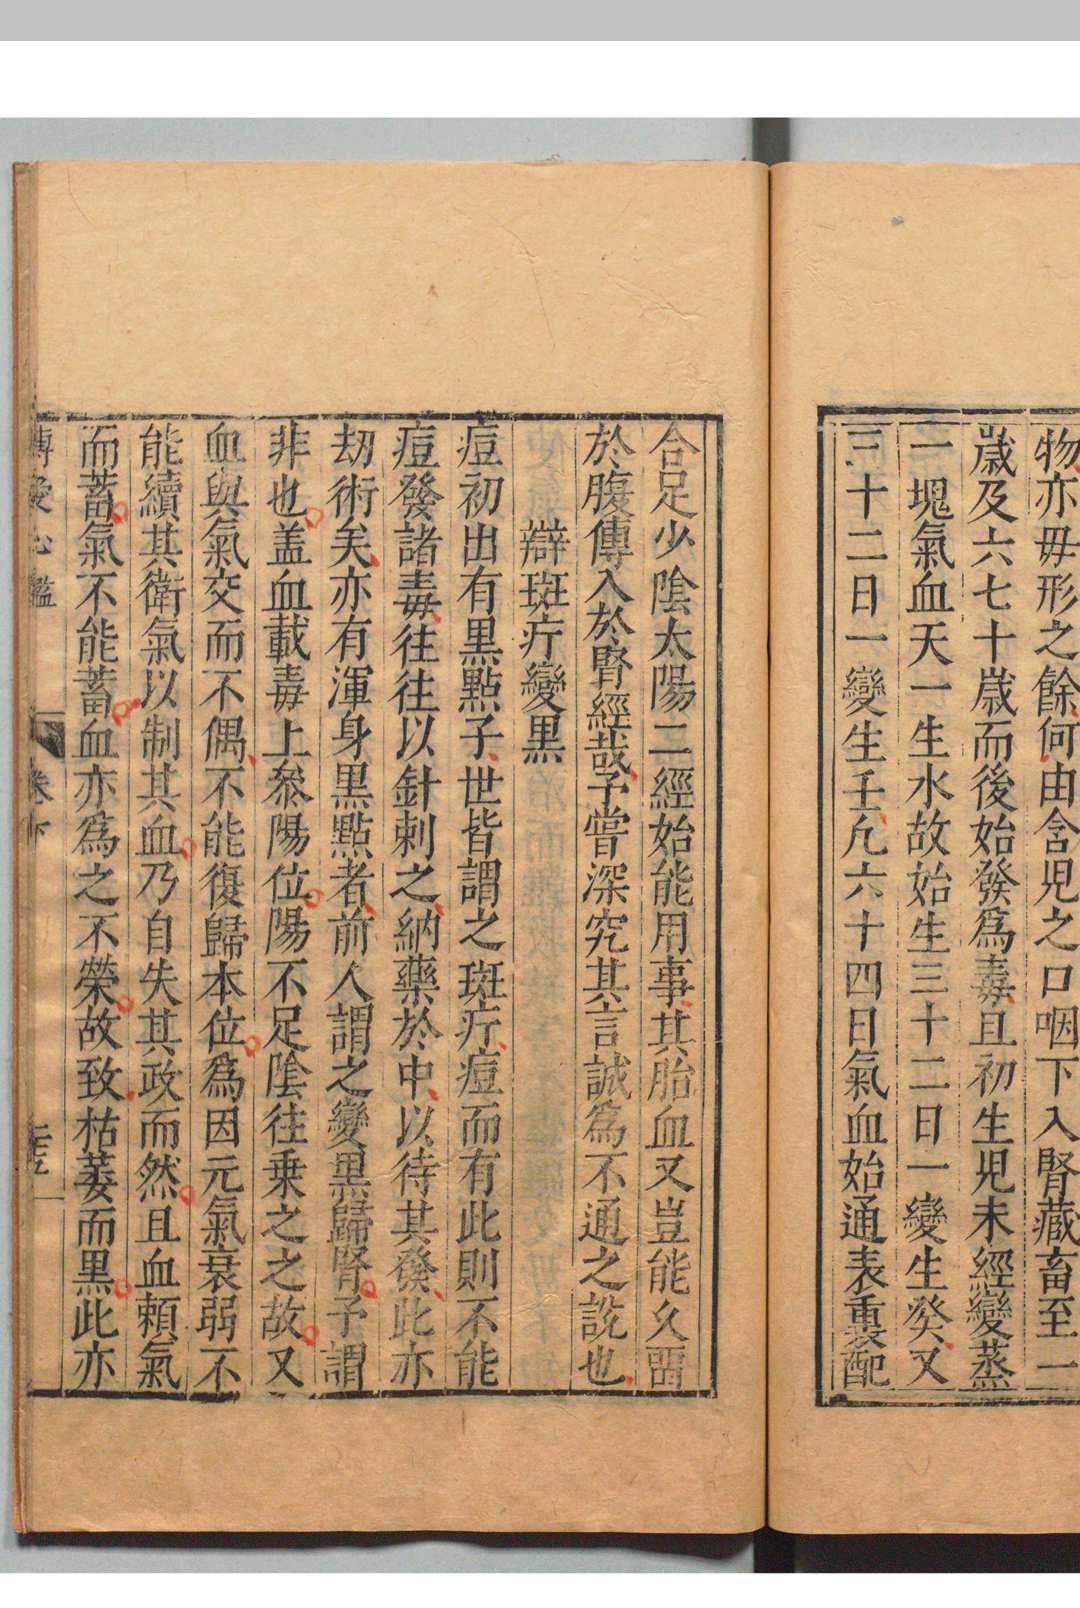 物亦毋形之餘何由含児之口咽下入腎藏畜至一
歲及六七十歲而後始發爲毒且初生児未經變蒸
一塊氣血天一生水故始生三十二日一變生癸又
三十二日一變生壬凢六十四日氣血始通表裏配
合足少陰太陽二經始能用事其胎血又豈能久畱
於腹傳入於腎經哉予嘗深究其言誠爲不通之說也
辯斑疔變黒
痘初出有黒點子世皆謂之斑疔痘而有此則不能
痘發諸毒徃徃以針剌之納藥於中以待其發此亦
刼術矣亦有渾身黒點者前人謂之變黒歸腎予謂
非也盖血載毒上叅陽位陽不足陰徃乗之之故又
血與氣交而不偶不能復歸本位爲因元氣衰弱不
能續其衛氣以制其血乃自失其政而然且血頼氣
而蓄氣不能蓄血亦爲之不榮故致枯萎而黒此亦
傳愛心鑑
卷下